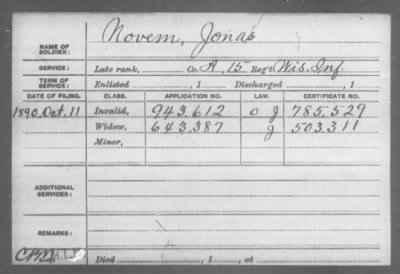 NAME OF SOLDIER: Novem, Jonas
SERVICE: Late rank, Co. A, 15 Reg't Wis. Inf.
TERM OF SERVICE: Enlisted , 1 Discharged , 1
DATE OF FILING. CLASS. APPLICATION NO. LAW. CERTIFICATE NO.
1890, Oct. 11 Invalid, 943.612 J 785.529
Widow, 643.387 J 503.311
Minor,
ADDITIONAL SERVICES:
REMARKS:
Died , 1 , at